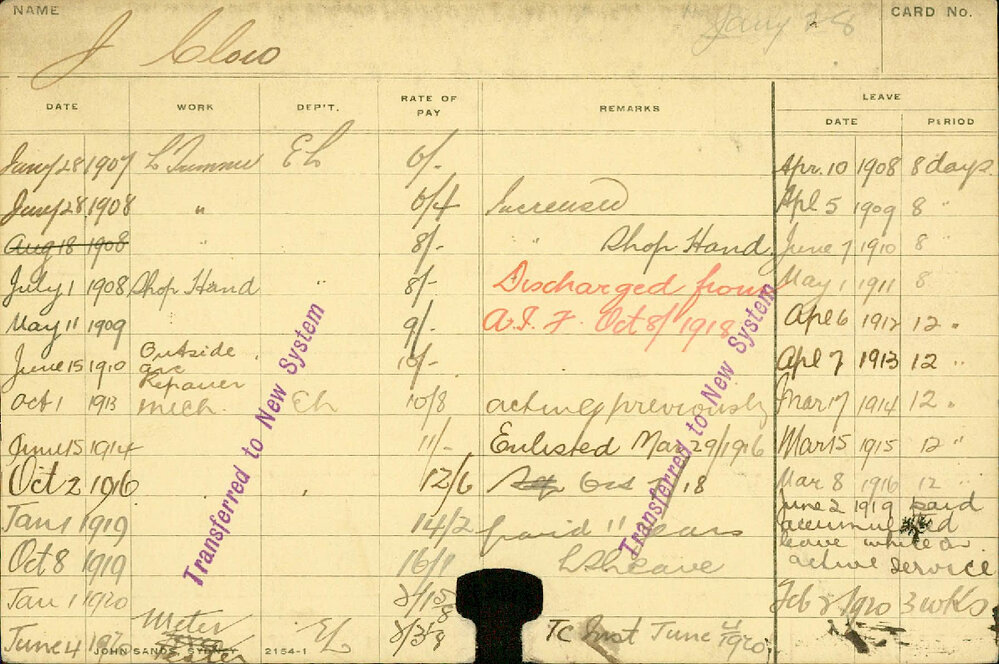 NAME
CARD No.
Jany 28
J Clow
DATE WORK DEP'T. RATE OF PAY REMARKS LEAVE
DATE PERIOD
Jany 28 1907 L Trimmer EL 6/- Apr. 10 1908 8 days.
Jany 28 1908 " 6/4 Increased Apl 5 1909 8 "
Aug 18 1908 " 8/- " Shop Hand June 7 1910 8 "
July 1 1908 Shop Hand " 8/- Discharged from May 1 1911 8
May 11 1909 9/- A.I.F. Oct 8/1918 Apl 6 1912 12 "
June 15 1910 Outside arc Repairer 10/- Apl 7 1913 12 "
Oct 1 1913 Mech. EL 10/8 acting previously Mar 17 1914 12 "
June 15 1914 11/- Enlisted Mar 29/1916 Mar 15 1915 12 "
Oct 2 1916 12/6 18 Mar 8 1916 12 "
Jan 1 1919 14/2 paid June 2 1919 paid
accumulated
leave while on
active service
Oct 8 1919 16/1 LSLeave
Jan 1 1920 Feb 1920 3 wks
June 4 1920 Meter Tester EL TC Inst June 4/1920
Transferred to New System
Transferred to New System
JOHN SANDS, SYDNEY 2154-1